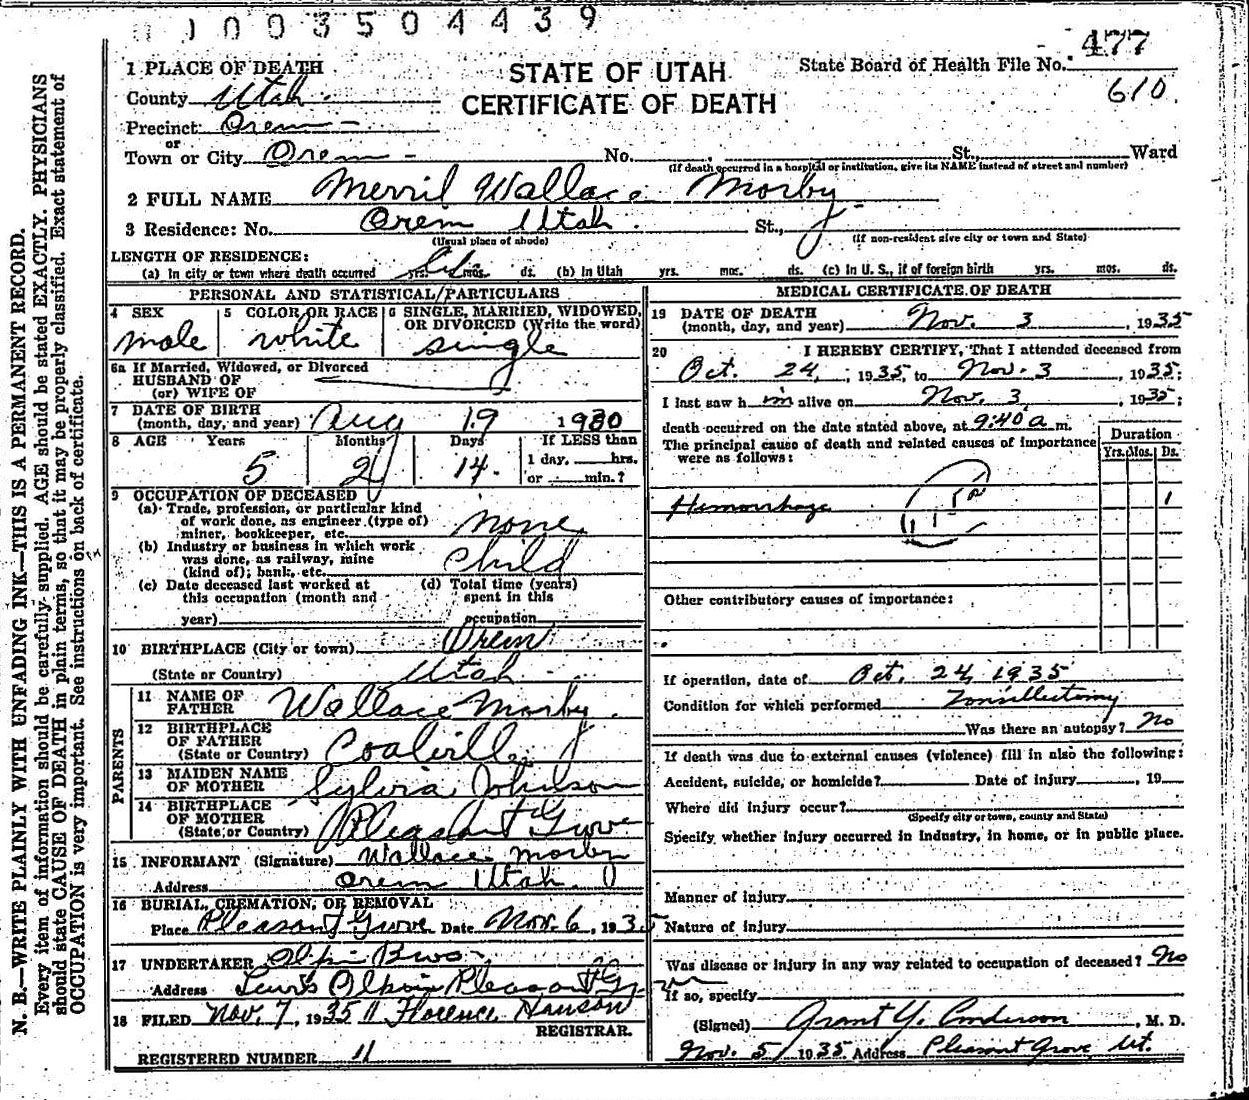 1003504439
1 PLACE OF DEATH
STATE OF UTAH
CERTIFICATE OF DEATH
State Board of Health File No. 477
610
County Utah
Precinct Orem
or
Town or City Orem No. St., Ward
(If death occurred in a hospital or institution, give its NAME instead of street and number)
2 FULL NAME Merril Wallace Morby
3 Residence: No. Orem Utah St.,
(Usual place of abode) (If non-resident give city or town and State)
LENGTH OF RESIDENCE:
(a) In city or town where death occurred Life yrs. mos. ds. (b) In Utah yrs. mos. ds. (c) In U. S., if of foreign birth yrs. mos. ds.
PERSONAL AND STATISTICAL PARTICULARS
4 SEX 5 COLOR OR RACE 6 SINGLE, MARRIED, WIDOWED,
OR DIVORCED (Write the word)
male white single
6a If Married, Widowed, or Divorced
HUSBAND OF
(or) WIFE OF
7 DATE OF BIRTH
(month, day, and year) Aug 19 1930
8 AGE Years Months Days If LESS than
1 day, hrs.
5 2 14 or min.?
9 OCCUPATION OF DECEASED
(a) Trade, profession, or particular kind
of work done, as engineer (type of)
miner, bookkeeper, etc. none
(b) Industry or business in which work
was done, as railway, mine
(kind of); bank, etc. child
(c) Date deceased last worked at
this occupation (month and
year)
(d) Total time (years)
spent in this
occupation
10 BIRTHPLACE (City or town) Orem
(State or Country) Utah
PARENTS
11 NAME OF
FATHER Wallace Morby
12 BIRTHPLACE
OF FATHER
(State or Country) Coalville
13 MAIDEN NAME
OF MOTHER Sylvia Johnson
14 BIRTHPLACE
OF MOTHER
(State or Country) Pleasant Grove
15 INFORMANT (Signature) Wallace Morby
Address Orem Utah
16 BURIAL, CREMATION, OR REMOVAL
Place Pleasant Grove Date Nov. 6, 1935
17 UNDERTAKER Olpin Bros
Address Lewis Olpin Pleasant G
18 FILED Nov. 7, 1935 Florence Hanson
REGISTRAR.
REGISTERED NUMBER 11
MEDICAL CERTIFICATE OF DEATH
19 DATE OF DEATH
(month, day, and year) Nov. 3, 1935
20 I HEREBY CERTIFY, That I attended deceased from
Oct. 24, 1935, to Nov. 3, 1935;
I last saw him alive on Nov. 3, 1935;
death occurred on the date stated above, at 9:40 a m.
The principal cause of death and related causes of importance
were as follows:
Duration
Yrs. Mos. Ds.
Hemorrhage 1
115a
Other contributory causes of importance:
If operation, date of Oct. 24, 1935
Condition for which performed Tonsillectomy
Was there an autopsy? No
If death was due to external causes (violence) fill in also the following:
Accident, suicide, or homicide? Date of injury , 19
Where did injury occur?
(Specify city or town, county and State)
Specify whether injury occurred in industry, in home, or in public place.
Manner of injury
Nature of injury
Was disease or injury in any way related to occupation of deceased? No
If so, specify
(Signed) Grant Y. Anderson, M. D.
Nov. 5, 1935 Address Pleasant Grove, Ut.
N. B.—WRITE PLAINLY WITH UNFADING INK—THIS IS A PERMANENT RECORD.
Every item of information should be carefully supplied. AGE should be stated EXACTLY. PHYSICIANS
should state CAUSE OF DEATH in plain terms, so that it may be properly classified. Exact statement of
OCCUPATION is very important. See instructions on back of certificate.